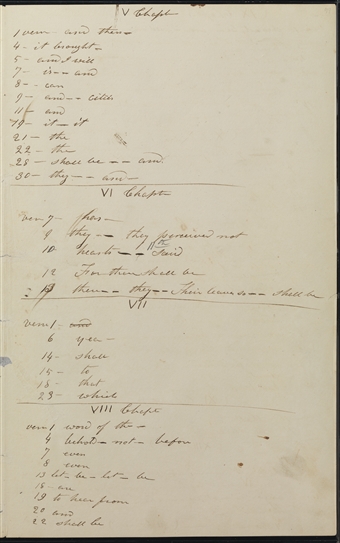 V Chapt
1 vers - and then -
4 - it brought -
5 - and I will
7 - is - - and
8 - - can
9 - and - - cities
11 - and
19 - it - it
21 - the
22 - the
28 - shall be - - and
30 - they - - and -
VI Chapt
vers 7 - has -
9 they - - they perceived not
10 hearts - - the Lord
12 For there shall be
13 there - they - Their leaves - - shall be
VII
vers 1 - and
6 yea -
14 - shall
15 - to
18 - that
23 - which
VIII Chapt
vers 1 word of the -
4 behold - not - before
7 even
8 even
13 let - be - let - be
18 - are
19 to hear from
20 and
22 shall be